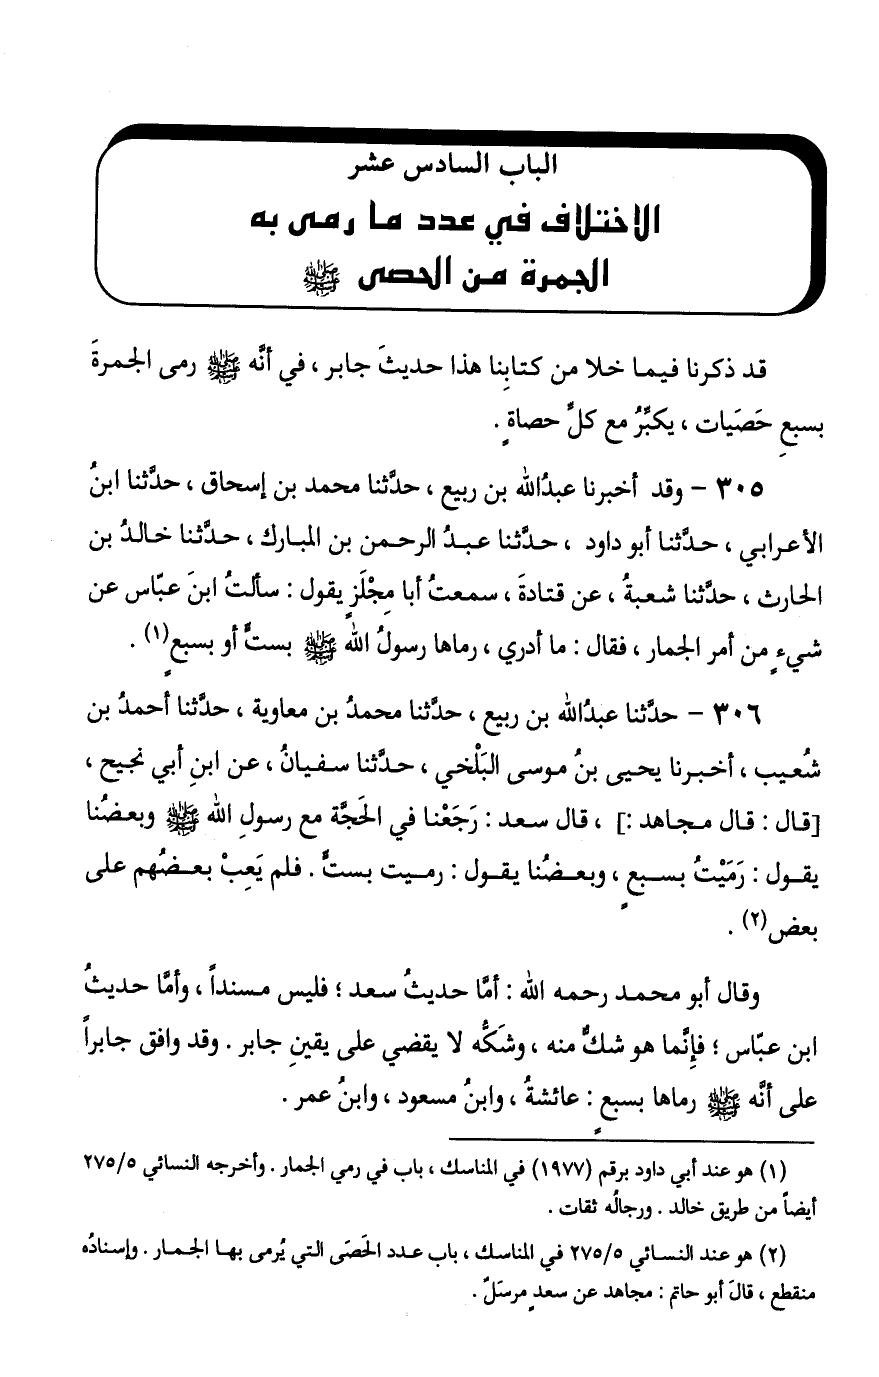 الباب السادس عشر
الاختلاف في عدد ما رمى به
الجمرة من الحصى ﷺ
قد ذكرنا فيما خلا من كتابِنا هذا حديثَ جابر ، في أنَّه ﷺ رمى الجمرةَ
بسبعِ حَصَيات ، يكبِّرُ مع كلِّ حصاةٍ .
٣٠٥ – وقد أخبرنا عبدُالله بن ربيع ، حدَّثنا محمد بن إسحاق ، حدَّثنا ابنُ
الأعرابي ، حدَّثنا أبو داود ، حدَّثنا عبدُ الرحمن بن المبارك ، حدَّثنا خالدُ بن
الحارث ، حدَّثنا شعبةُ ، عن قتادةَ ، سمعتُ أبا مِجْلَزٍ يقول : سألتُ ابنَ عبّاس عن
شيءٍ من أمر الجمار ، فقال : ما أدري ، رماها رسولُ الله ﷺ بستٍّ أو بسبعٍ(١) .
٣٠٦ – حدَّثنا عبدُالله بن ربيع ، حدَّثنا محمدُ بن معاوية ، حدَّثنا أحمدُ بن
شُعيب ، أخبرنا يحيى بنُ موسى البَلْخي ، حدَّثنا سفيانُ ، عن ابنِ أبي نجيح ،
[قال : قال مجاهد :] ، قال سعد : رَجَعْنا في الحَجَّة مع رسولِ الله ﷺ وبعضُنا
يقول : رَمَيْتُ بسبعٍ ، وبعضُنا يقول : رميت بستٍّ . فلم يَعِبْ بعضُهم على
بعض(٢) .
وقال أبو محمد رحمه الله : أمَّا حديثُ سعد ؛ فليس مسنداً ، وأمَّا حديثُ
ابن عبّاس ؛ فإنَّما هو شكٌّ منه ، وشكُّه لا يقضي على يقينِ جابر . وقد وافق جابراً
على أنَّه ﷺ رماها بسبعٍ : عائشةُ ، وابنُ مسعود ، وابنُ عمر .
(١) هو عند أبي داود برقم (١٩٧٧) في المناسك ، باب في رمي الجمار . وأخرجه النسائي ٢٧٥/٥
أيضاً من طريق خالد . ورجالُه ثقات .
(٢) هو عند النسائي ٢٧٥/٥ في المناسك ، باب عدد الحَصَى التي يُرمى بها الجمار . وإسنادُه
منقطع ، قالَ أبو حاتم : مجاهد عن سعدٍ مرسَلٌ .